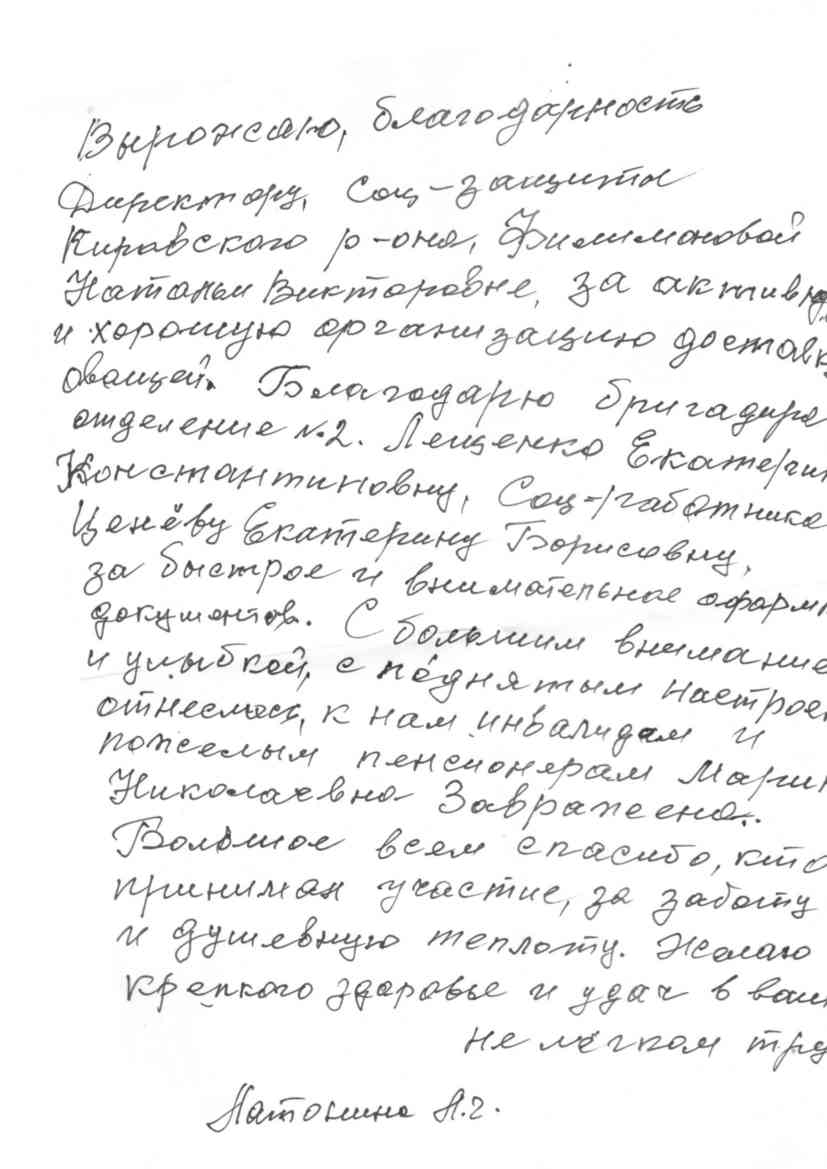 Вырожаю, благодарность
Директору, Соц-защиты
Кировского р-она, Филимоновой
Натальи Викторовне, за активну
и хорошую организацию доставк
овощей. Благодарю бригадира
отделение №2. Лещенко Екатери
Константиновну, Соц-работника
Ценёву Екатерину Борисовну,
за быстрое и внимательное оформ
документов. С большим внимание
и улыбкой, с поднятым настрое
отнеслась, к нам инвалидам и
пожелым пенсионерам Марин
Николаевна Завражена.
Большое всем спасибо, кто
принимал участие, за заботу
и душевную теплоту. Желаю
крепкого здоровье и удач в ваш
не лёгком тру
Натонина Н.г.